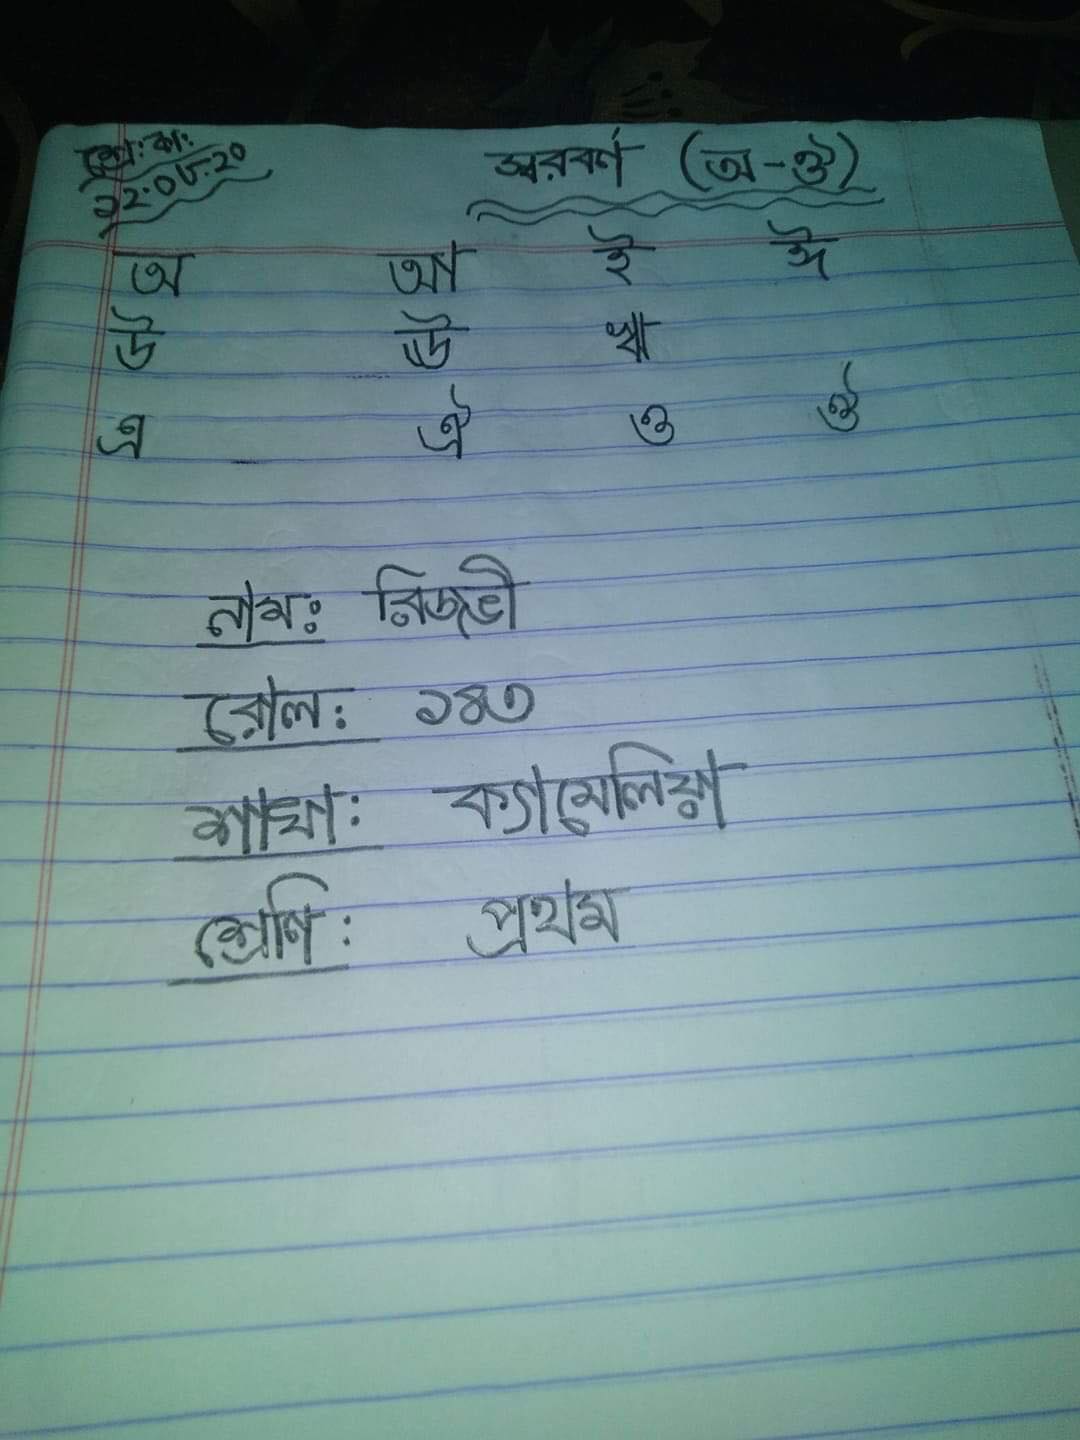 শ্রে: কা:
২২.০৮.২০
স্বরবর্ণ (অ-ঔ)
অ আ ই ঈ
উ ঊ ঋ
এ ঐ ও ঔ
নাম: রিজভী
রোল: ১৪৩
শাখা: ক্যামেলিয়া
শ্রেণি: প্রথম